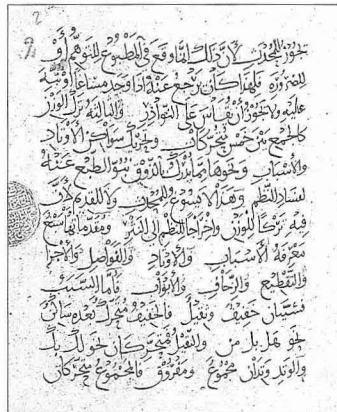 تجوز للمحدث لأن ذلك إنما وقع في المطبوع للتوهم أو
للضرورة فلهذا كان يرجع عنه إذا وجد مساغا أو نبه
عليه ولا يجوز أن يقاس على النوادر والثالثة ترك الوزن
كالجمع بين خمس متحركات وتحريك سواكن الأوتاد
والأسباب ونحوها مما يدرك بالذوق نبو الطبع عنه
لفساد النظم وهذا لا يسوغ للمحدث ولا للقديم لأن
فيه تركا للوزن وإخراجا للنظم إلى النثر ومقدماتها سبع
معرفة الأسباب والأوتاد والفواصل والأجزا
والتقطيع والزحاف والأبواب فأما السبب
فسببان خفيف وثقيل فالخفيف متحرك بعده ساكن
نحو هل بل من والثقيل متحركان نحو لك بك
والوتد وتدان مجموع ومفروق فالمجموع متحركان